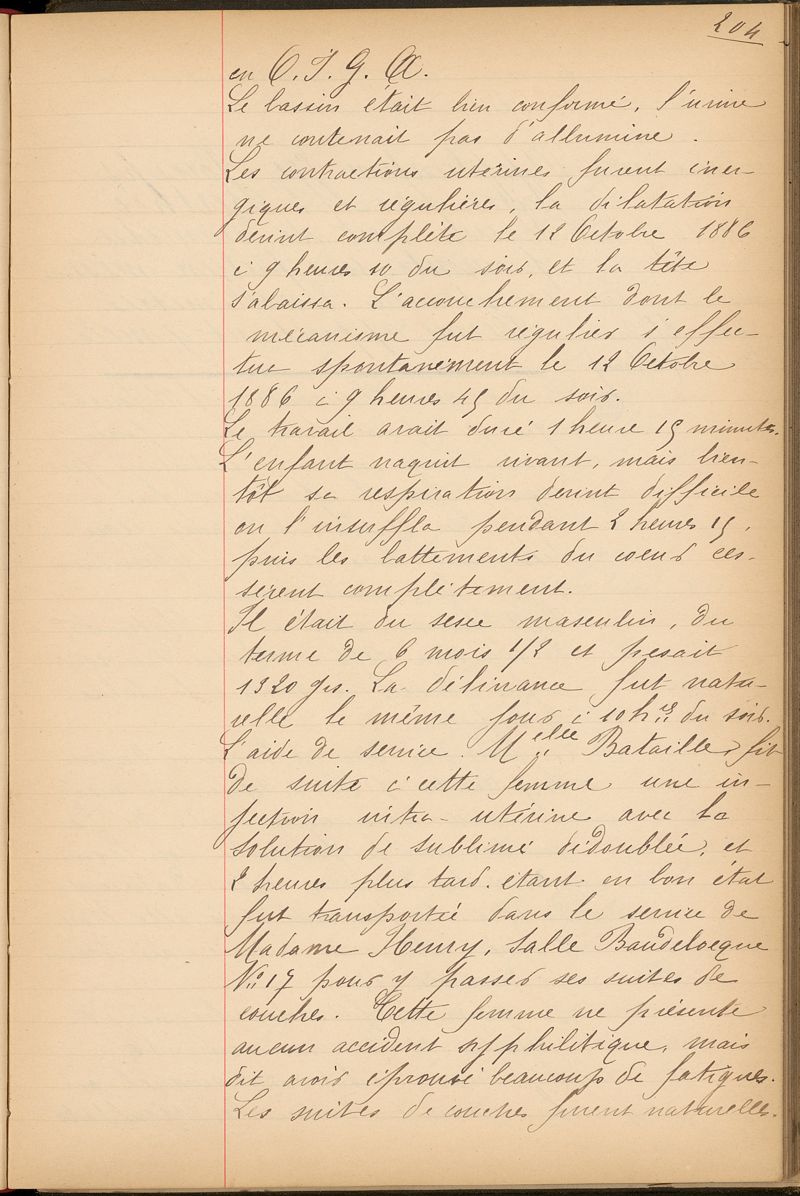 204
en O. I. G. A.
Le bassin était bien conformé, l'urine
ne contenait pas d'albumine.
Les contractions utérines furent éner-
giques et régulières, la dilatation
devint complète le 12 Octobre 1886
à 9 heures 10 du soir, et la tête
s'abaissa. L'accouchement dont le
mécanisme fut régulier s'effec-
tua spontanément le 12 Octobre
1886 à 9 heures 45 du soir.
Le travail avait duré 1 heure 15 minutes.
L'enfant naquit vivant, mais bien-
tôt sa respiration devint difficile
on l'insuffla pendant 2 heures 15,
puis les battements du coeur ces-
sèrent complètement.
Il était du sexe masculin, du
terme de 6 mois 1/2 et pesait
1320 grs. La délivrance fut natu-
relle le même jour à 10 hres du soir.
L'aide de service. Melle Bataille, fit
de suite à cette femme une in-
jection intra-utérine avec la
solution de sublimé dédoublée, et
2 heures plus tard. étant en bon état
fut transportée dans le service de
Madame Henry, Salle Baudelocque
No 17 pour y passer ses suites de
couches. Cette femme ne présente
aucun accident syphilitique, mais
dit avoir éprouvé beaucoup de fatigues.
Les suites de couches furent naturelles.